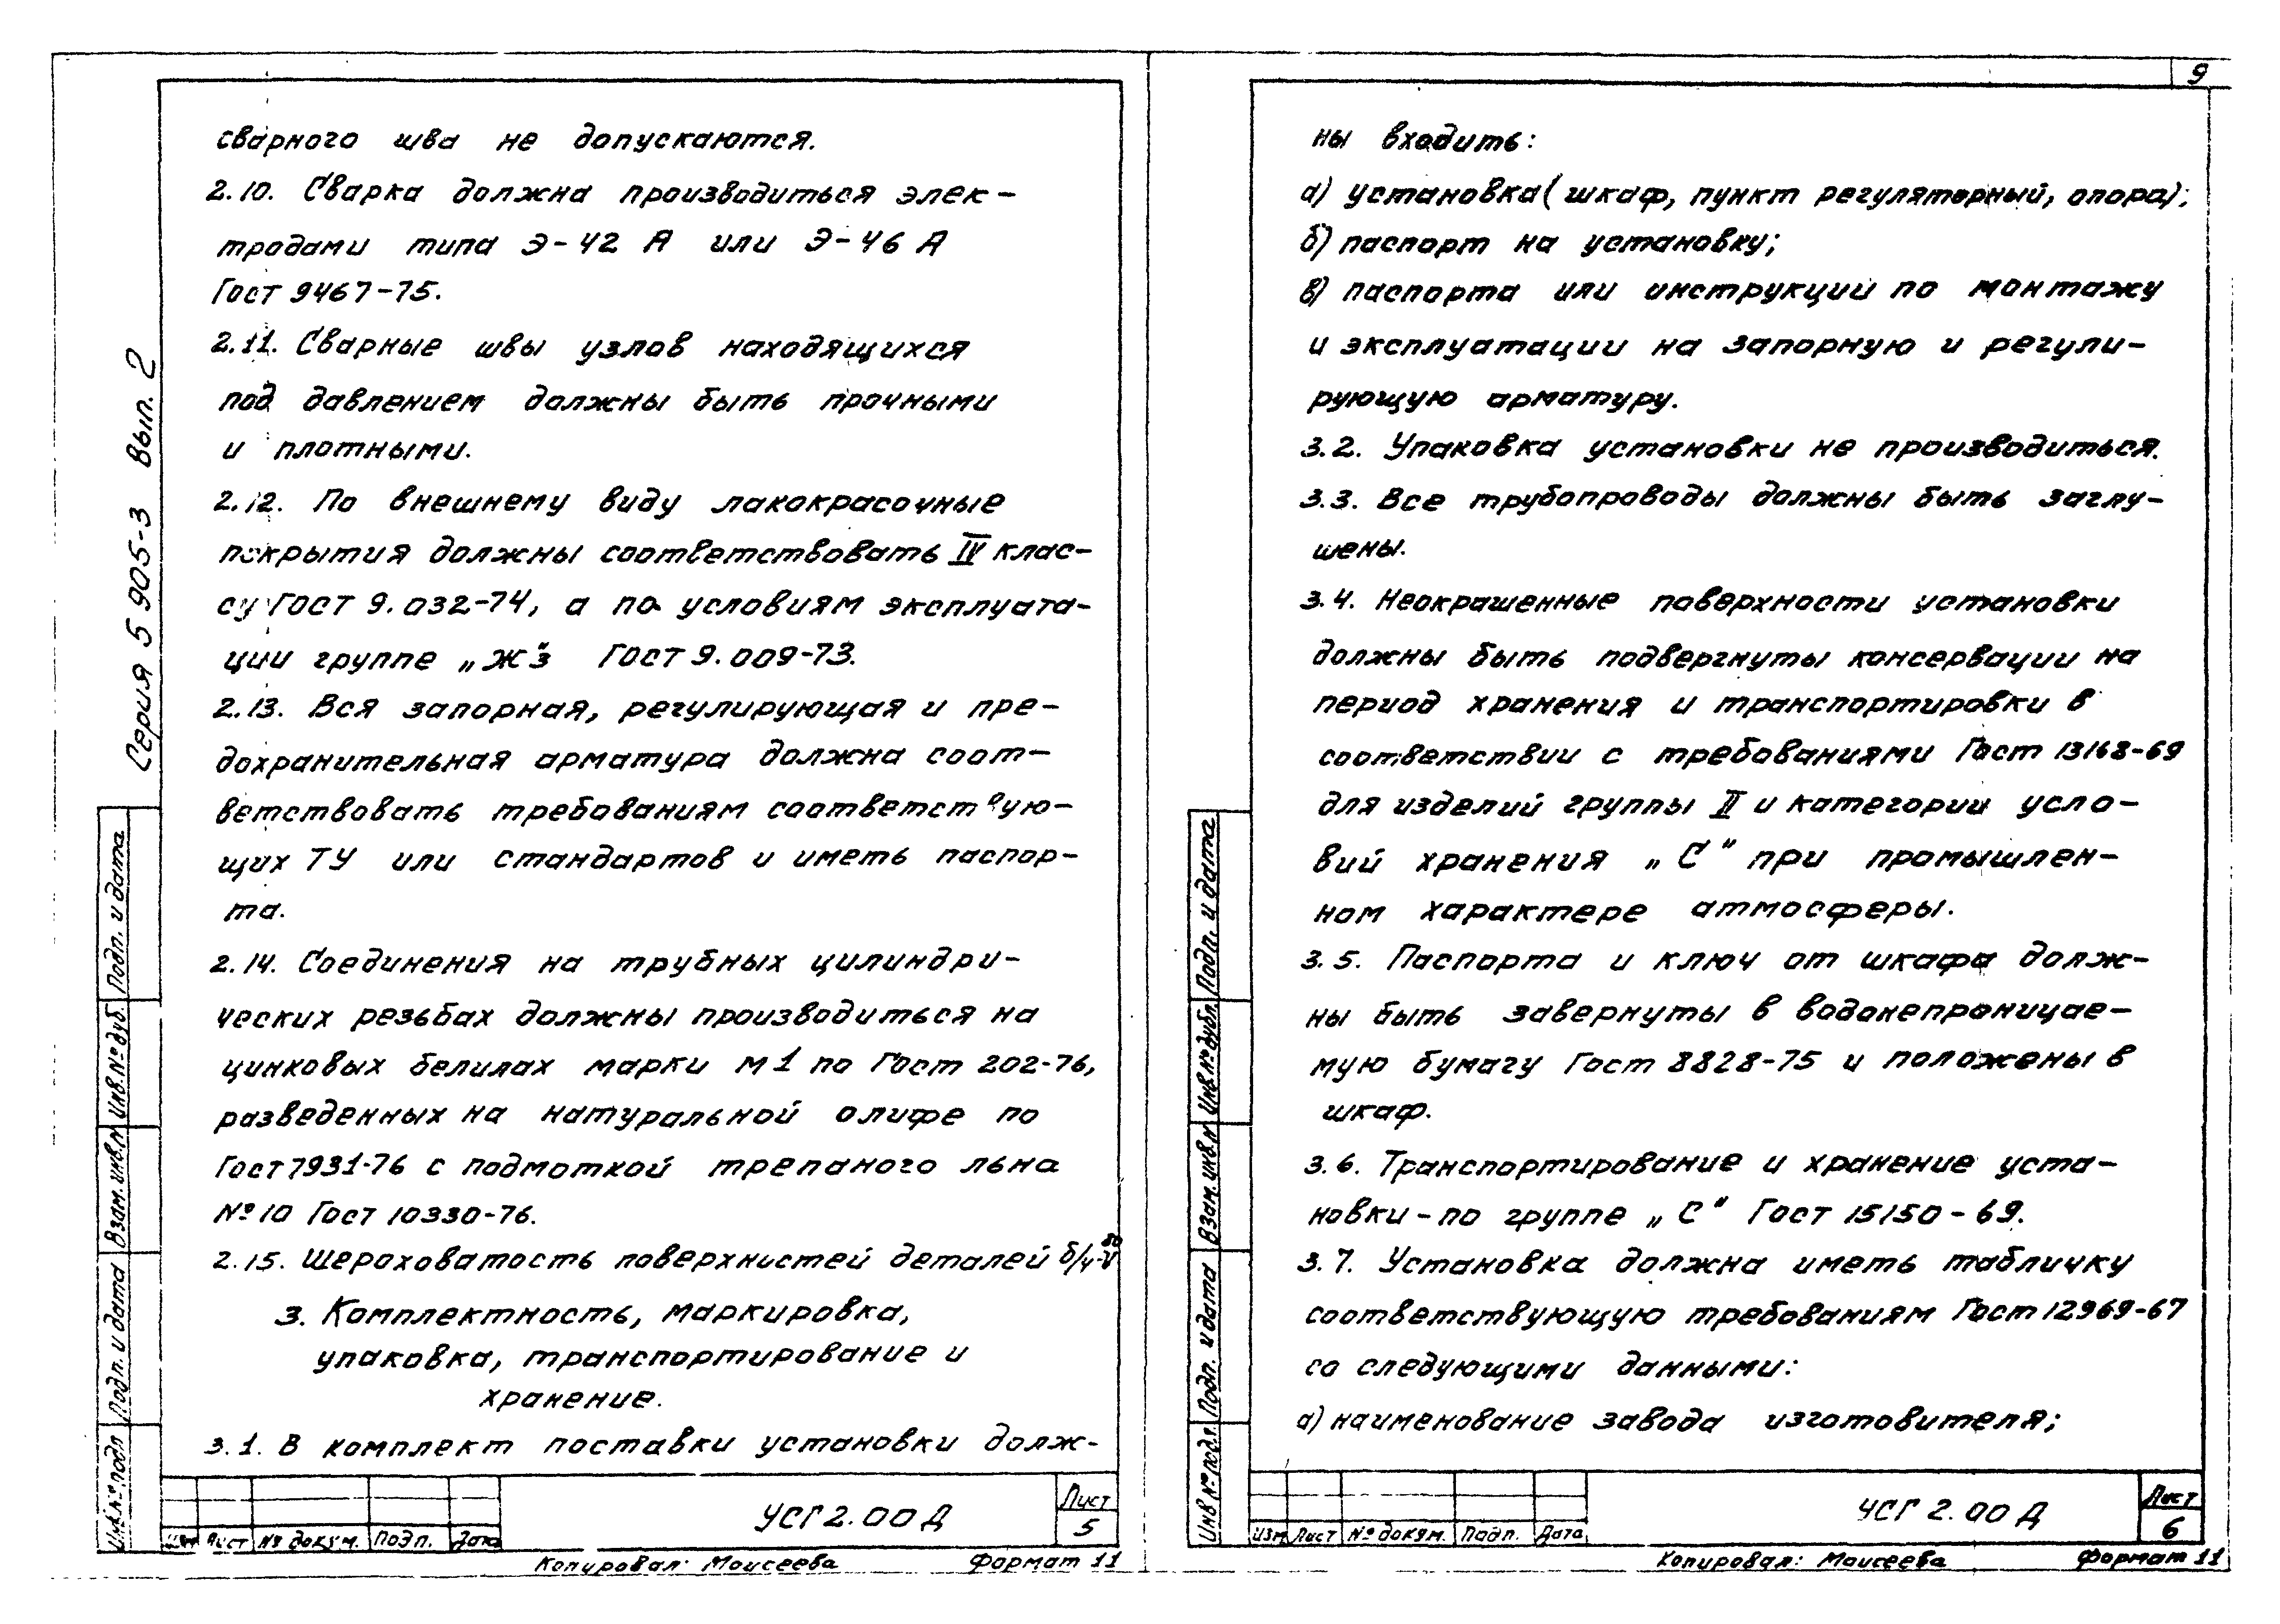 сварного шва не допускаются.
2.10. Сварка должна производиться элек-
тродами типа Э-42 А или Э-46 А
Гост 9467-75.
2.11. Сварные швы узлов находящихся
под давлением должны быть прочными
и плотными.
2.12. По внешнему виду лакокрасочные
покрытия должны соответствовать IV клас-
су ГОСТ 9.032-74, а по условиям эксплуата-
ции группе „Ж"з ГОСТ 9.009-73.
2.13. Вся запорная, регулирующая и пре-
дохранительная арматура должна соот-
ветствовать требованиям соответствую-
щих ТУ или стандартов и иметь паспор-
та.
2.14. Соединения на трубных цилиндри-
ческих резьбах должны производиться на
цинковых белилах марки М1 по Гост 202-76,
разведенных на натуральной олифе по
Гост 7931-76 с подмоткой трепаного льна
№10 Гост 10330-76.
2.15. Шероховатость поверхностей деталей б/ч-80
3. Комплектность, маркировка,
упаковка, транспортирование и
хранение.
3.1. В комплект поставки установки долж-
УСГ 2.00 Д
Лист
5
Изм Лист № докум. Подп. Дата
Копировал: Моисеева Формат 11
Серия 5 905-3 Вып. 2
Подп. и дата
Инв.№ дуб.
Взам. инв.№
Подп. и дата
Инв.№ подл
9
ны входить:
а) установка (шкаф, пункт регуляторный, опора);
б) паспорт на установку;
в) паспорта или инструкции по монтажу
и эксплуатации на запорную и регули-
рующую арматуру.
3.2. Упаковка установки не производиться.
3.3. Все трубопроводы должны быть заглу-
шены.
3.4. Неокрашенные поверхности установки
должны быть подвергнуты консервации на
период хранения и транспортировки в
соответствии с требованиями Гост 13168-69
для изделий группы II и категории усло-
вий хранения „С" при промышлен-
ном характере атмосферы.
3.5. Паспорта и ключ от шкафа долж-
ны быть завернуты в водонепроницае-
мую бумагу Гост 8828-75 и положены в
шкаф.
3.6. Транспортирование и хранение уста-
новки - по группе „С" Гост 15150-69.
3.7. Установка должна иметь табличку
соответствующую требованиям Гост 12969-67
со следующими данными:
а) наименование завода изготовителя;
УСГ 2.00 Д
Лист
6
Изм Лист № докум. Подп. Дата
Копировал: Моисеева Формат 11
Подп. и дата
Инв.№ дубл.
Взам. инв.№
Подп. и дата
Инв № подл.